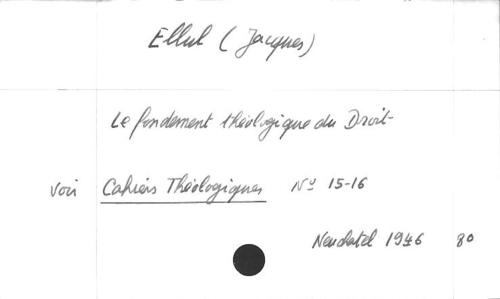 Ellul (Jacques)
Le fondement théologique du Droit
voir Cahiers Théologiques Nº 15-16
Neuchatel 1946 8º